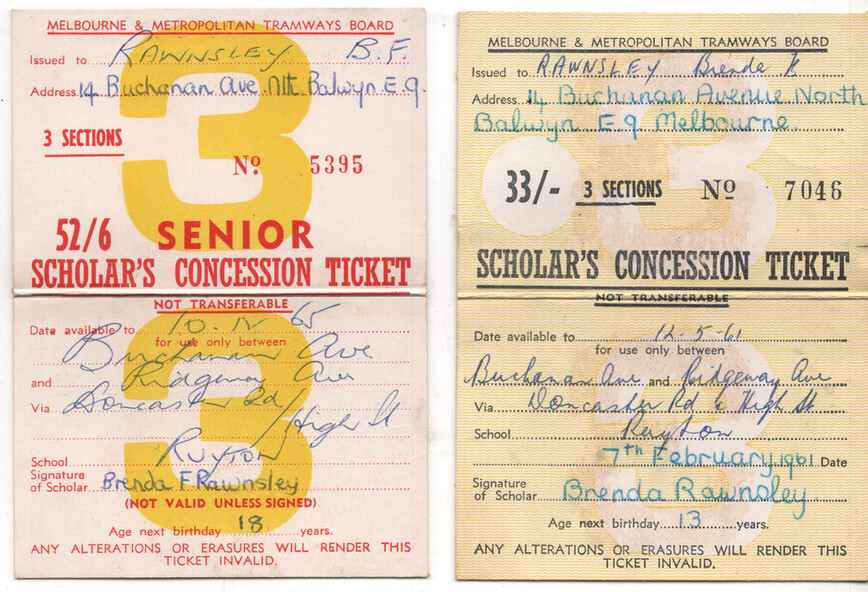 MELBOURNE & METROPOLITAN TRAMWAYS BOARD
Issued to RAWNSLEY B.F.
Address 14 Buchanan Ave Nth Balwyn E.9.
3 SECTIONS
No. 5395
52/6 SENIOR
SCHOLAR'S CONCESSION TICKET
NOT TRANSFERABLE
Date available to 10. IV 65
for use only between
Buchanan Ave
and Ridgeway Ave
Via Doncaster Rd/
High St
School Ruyton
Signature
of Scholar Brenda F Rawnsley
(NOT VALID UNLESS SIGNED)
Age next birthday 18 years.
ANY ALTERATIONS OR ERASURES WILL RENDER THIS
TICKET INVALID.
3
3
MELBOURNE & METROPOLITAN TRAMWAYS BOARD
Issued to RAWNSLEY Brenda F
Address 14 Buchanan Avenue North
Balwyn E9 Melbourne
33/- 3 SECTIONS No 7046
SCHOLAR'S CONCESSION TICKET
NOT TRANSFERABLE
Date available to 12-5-61
for use only between
Buchanan Ave and Ridgeway Ave
Via Doncaster Rd & High St
School Ruyton
7th February 1961 Date
Signature
of Scholar Brenda Rawnsley
Age next birthday 13 years.
ANY ALTERATIONS OR ERASURES WILL RENDER THIS
TICKET INVALID.
3
3